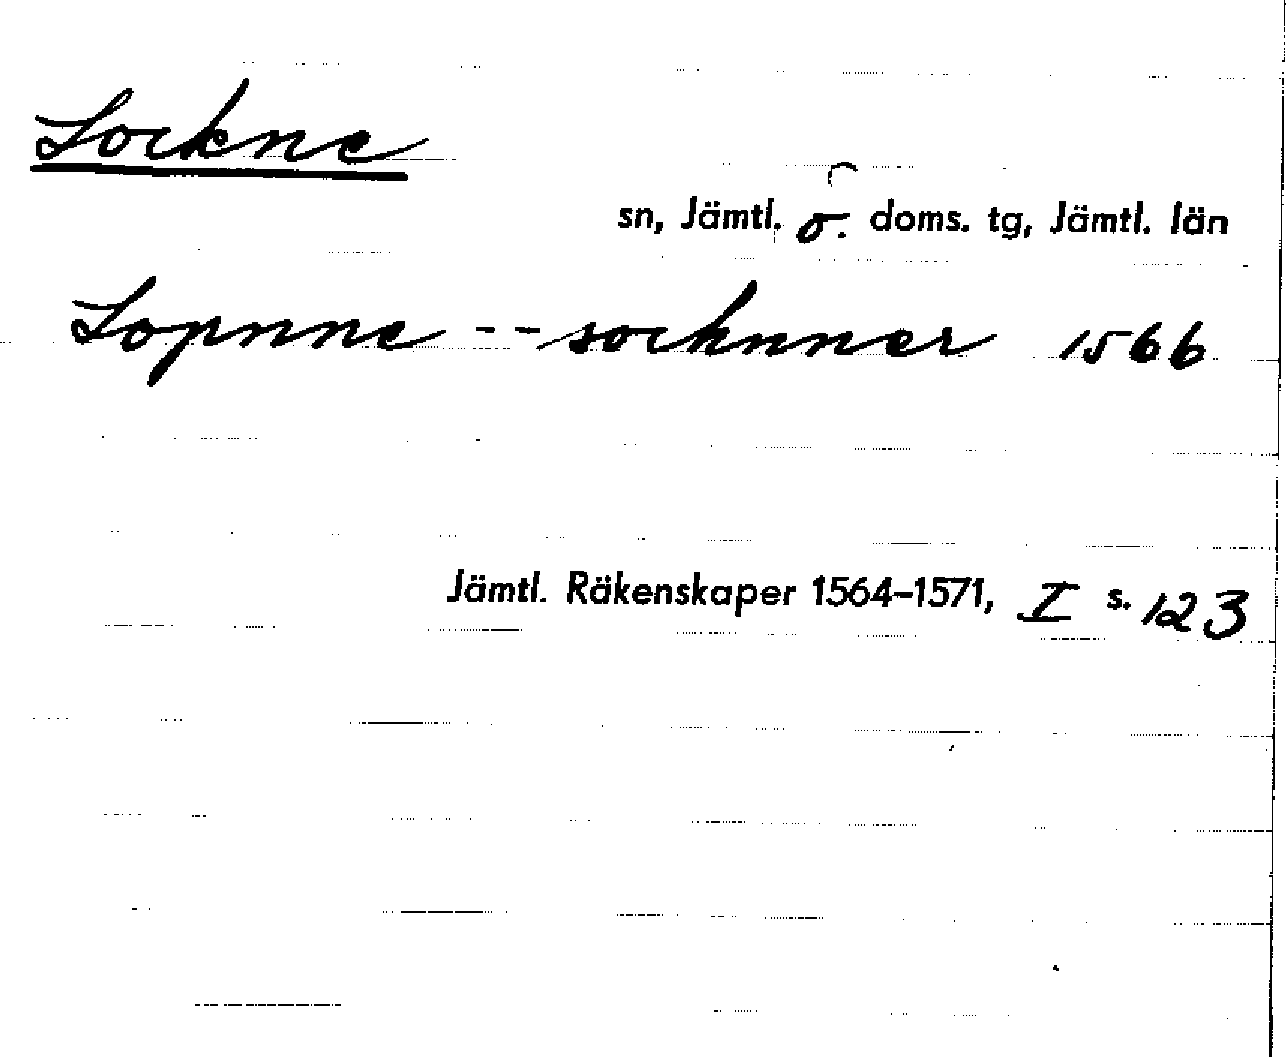 Lockne
sn, Jämtl. ö. doms. tg, Jämtl. län
Lopnne -- socknner 1566
Jämtl. Räkenskaper 1564–1571, I s. 123